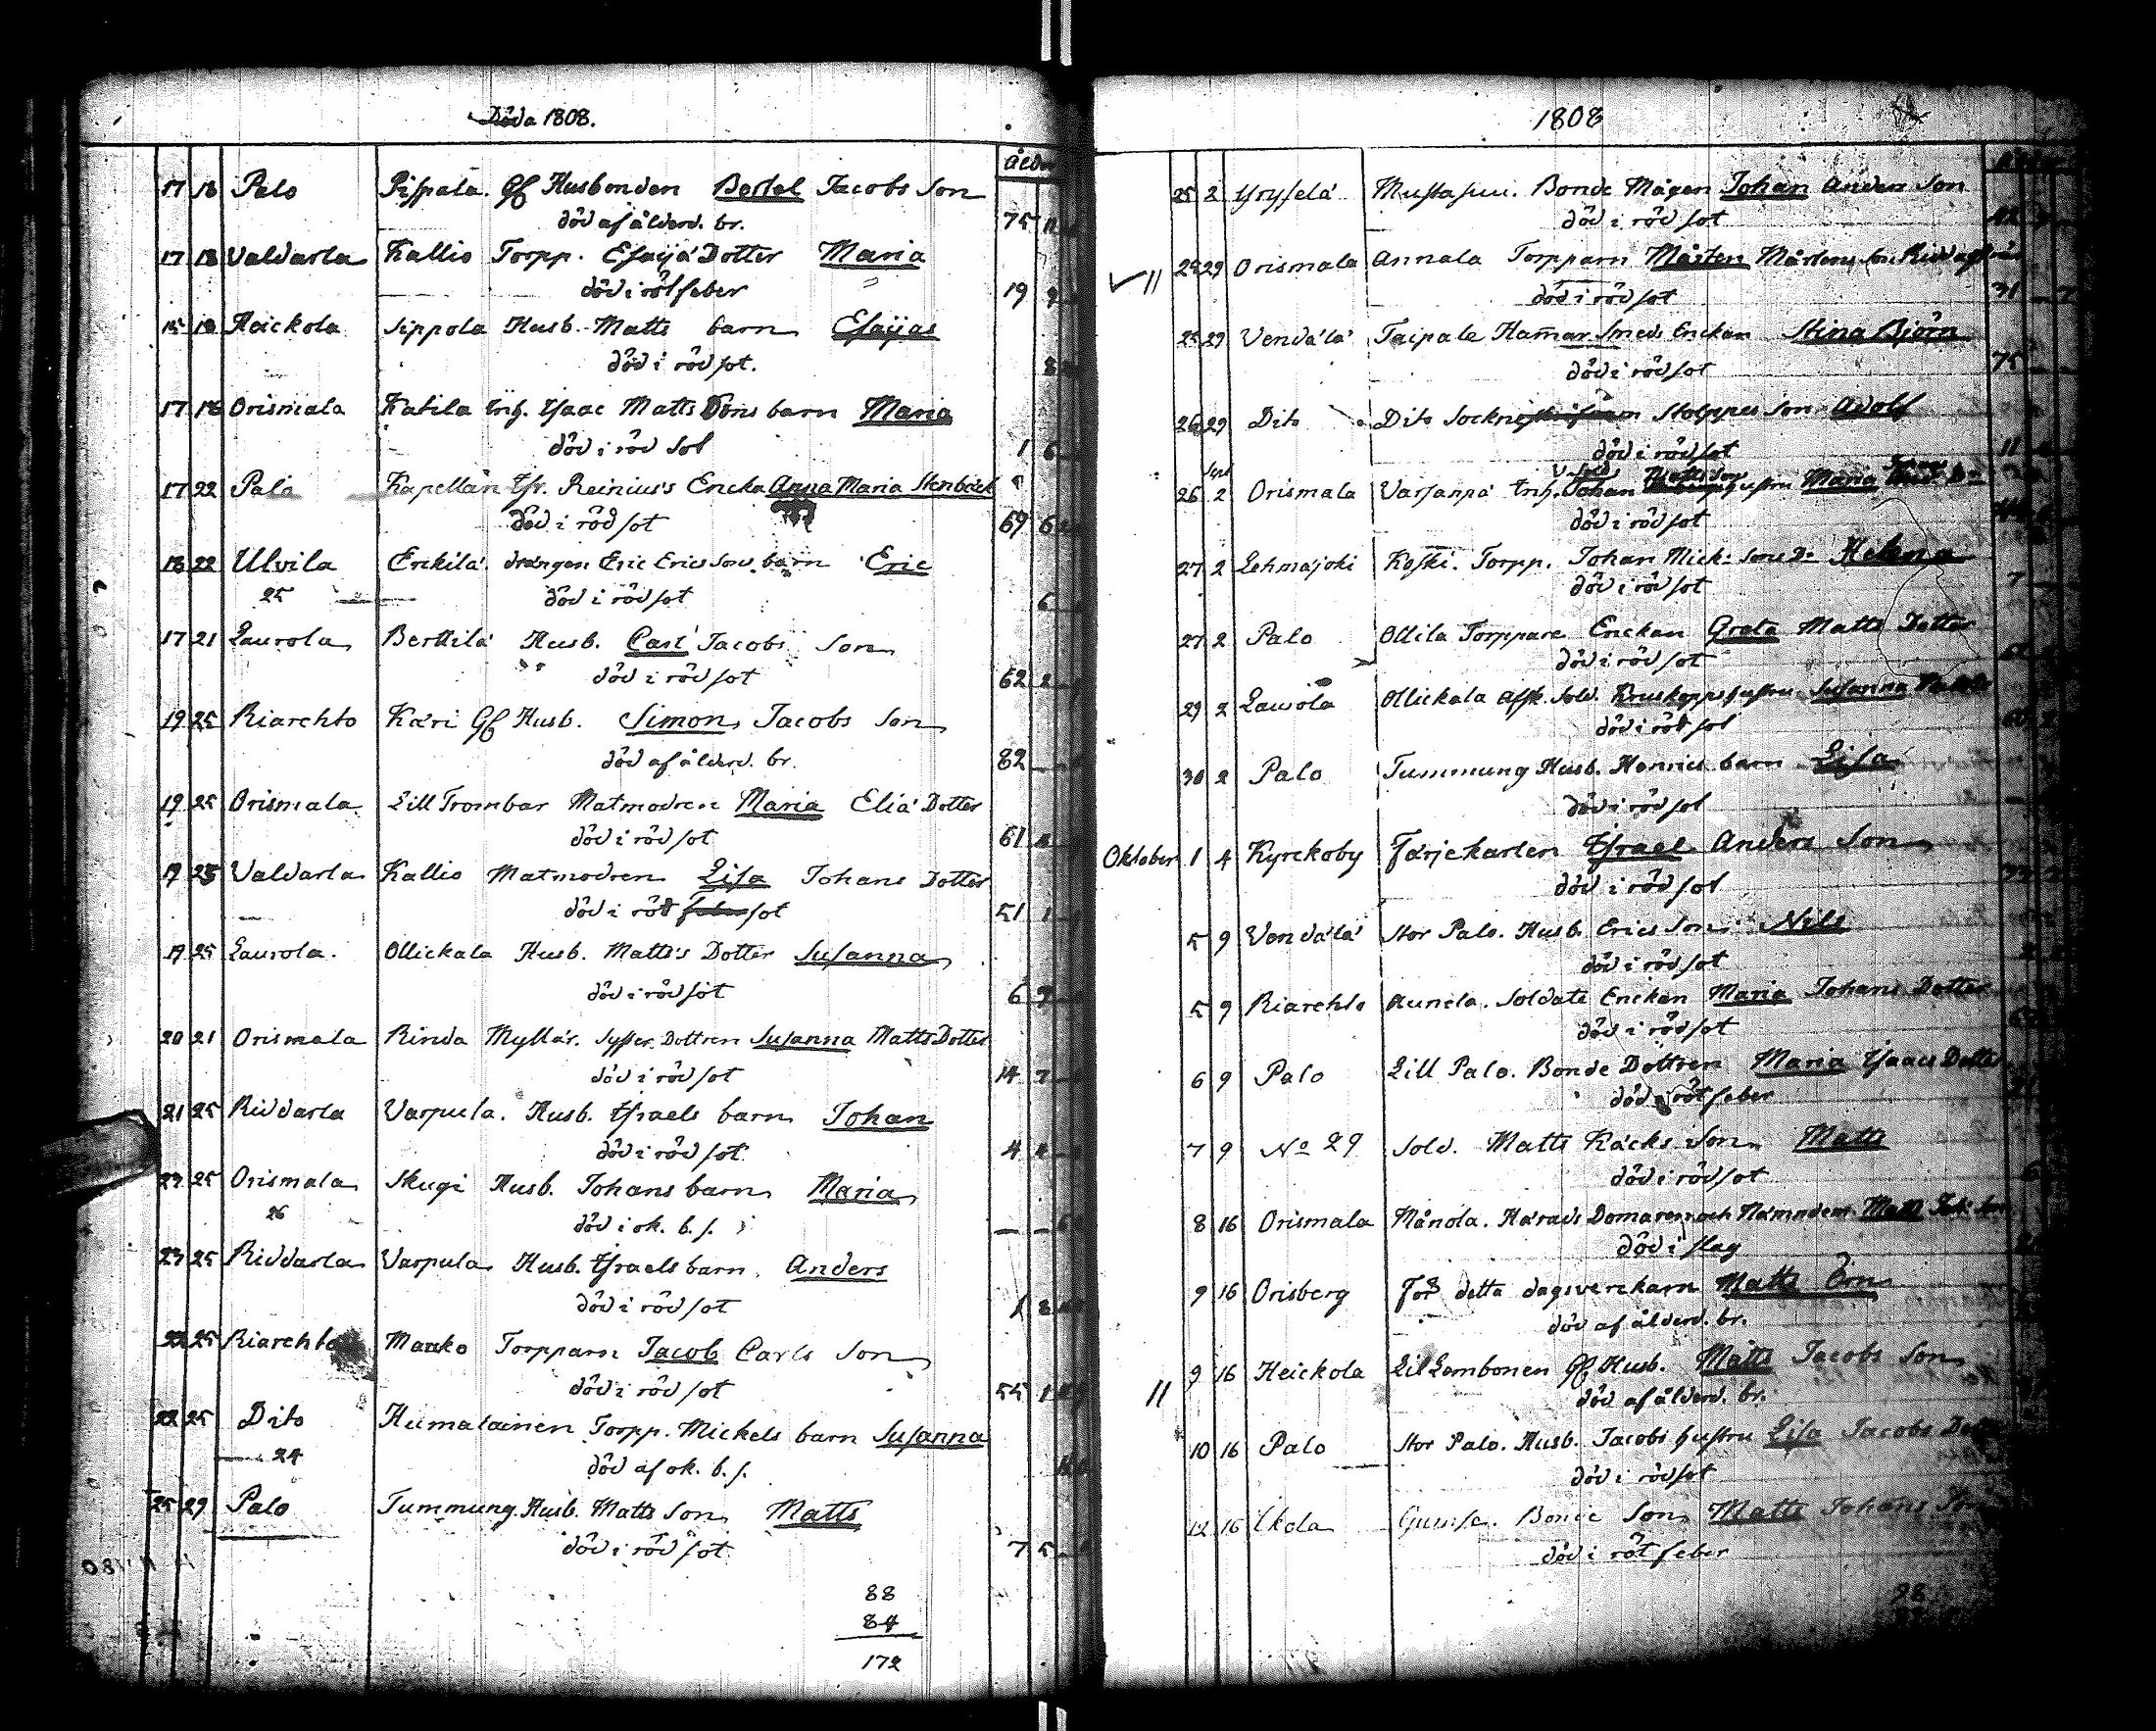 Döda 1808.
Ålder
17 18 Palo Pispala. Gf Husbonden Bertel Jacobs Son
död af ålderd. br. 75 11
17 18 Valdarla Kallio Torpp. Esaijä Dotter Maria
död i rötfeber 19 9
15 18 Heickola Sippola Husb. Matts barn Esaijas
död i röd sot. 8
17 18 Orismala Katila Inh. Isaac Matts Sons barn Maria
död i röd sot 1 6
17 22 Palo Kapellan Hr. Reinius's Encka Anna Maria Stenbäck
död i röd sot 69 6
18 22 Ulvila Enckilä drängen Eric Ericsons barn Eric
25 död i röd sot 6
17 21 Laurola Berttilä Husb. Carl Jacobs Son
död i röd sot 62 2
19 25 Riarehto Käri Gf Husb. Simon Jacobs Son
död af ålderd. br. 82
19 25 Orismala Lill Trombar Matmodren Maria Eliä Dotter
död i röd sot 61
19 25 Valdarla Kallio Matmodren Lisa Johans Dotter
död i röd feber sot 51 1
19 25 Laurola. Ollickala Husb. Matts's Dotter Susanna
död i röd sot 6 9
20 21 Orismala Rinda Myllär. Syster Dottren Susanna Matts Dotter
död i röd sot 14 7
21 25 Riddarla Varpula. Husb. Israels barn Johan
död i röd sot 4
23 25 Orismala Skugi Husb. Johans barn Maria
26 död i ok. b. s.
23 25 Riddarla Varpula Husb. Israels barn Anders
död i röd sot 1 8
22 25 Riarehto Mauko Torpparn Jacob Carls Son
död i röd sot 55 1
22 25 Dito Humalainen Torpp. Mickels barn Susanna
24 död af ok. b. s.
25 29 Palo Tummung Husb. Matts Son Matts
död i röd sot 7 5
88
84
172
1808
25 2 Yryselä Mustapuu. Bonde Mågen Johan Anders Son
död i röd sot
25 29 Orismala Annala Torpparn Mårten Mårtens Son
död i röd sot 31
25 29 Vendälä Taipale Ham̄ar Smeds Enckan Stina Björn
död i röd sot 75
26 29 Dito Dito Stolppes Son Adolf
död i röd sot 11
26 2 Orismala Varsanpä Inh. Johan hustru Maria
död i röd sot
27 2 Lehmäjoki Koski. Torpp. Johan Mick: Sons Dr Helena
död i röd sot 7
27 2 Palo Ollila Torppare Enckan Greta Matts Dotter
död i röd sot
29 2 Laurola Ollickala afsk. Sold. Kruskopps hustru Susanna
död i röd sot
30 2 Palo Tummung Husb. Henrics barn Lisa
död i röd sot
Oktober 1 4 Kyrckoby Färjekarlen Israel Anders Son
död i röd sot
5 9 Vendälä Stor Palo. Husb. Erics Son Nils
död i röd sot
5 9 Riarehto Aunela. Soldats Enckan Maria Johans Dotter
död i röd sot
6 9 Palo Lill Palo. Bonde Dottren Maria Isaacs Dotter
död i rötfeber
7 9 No 29 Sold. Matts Käcks Son Matts
död i röd sot
8 16 Orismala Månola. Härads Domaren och Nämndem. Matts
död i slag
9 16 Orisberg För detta dagsverckarn Matts Örn
död af ålderd. br.
9 16 Heickola Lil Lambonen Gf Husb. Matts Jacobs Son
död af ålderd. br.
10 16 Palo Stor Palo. Husb. Jacobs hustru Lisa Jacobs
död i röd sot
12 16 Ikola Bonde Son Matts Johans Son
död i rötfeber